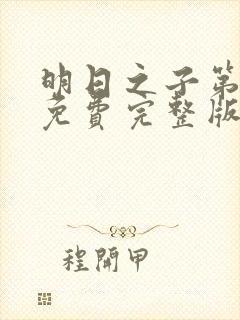 明日之子第
免費完整版
程開甲